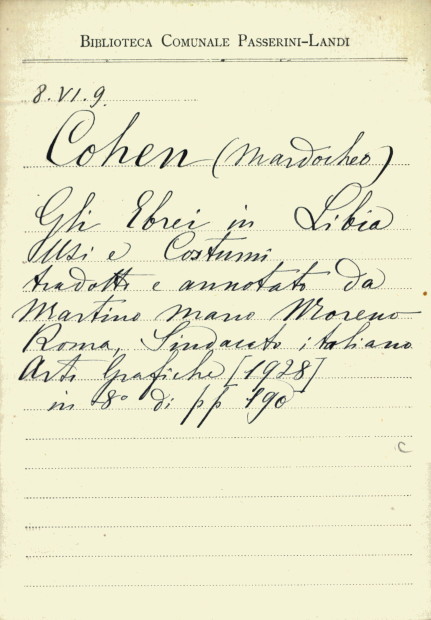 BIBLIOTECA COMUNALE PASSERINI-LANDI
8.VI.9.
Cohen (Mardocheo)
Gli Ebrei in Libia
Usi e Costumi
tradotto e annotato da
Martino Mario Moreno
Roma, Sindacato italiano
Arti Grafiche [1928]
in 8° di pp 190
c